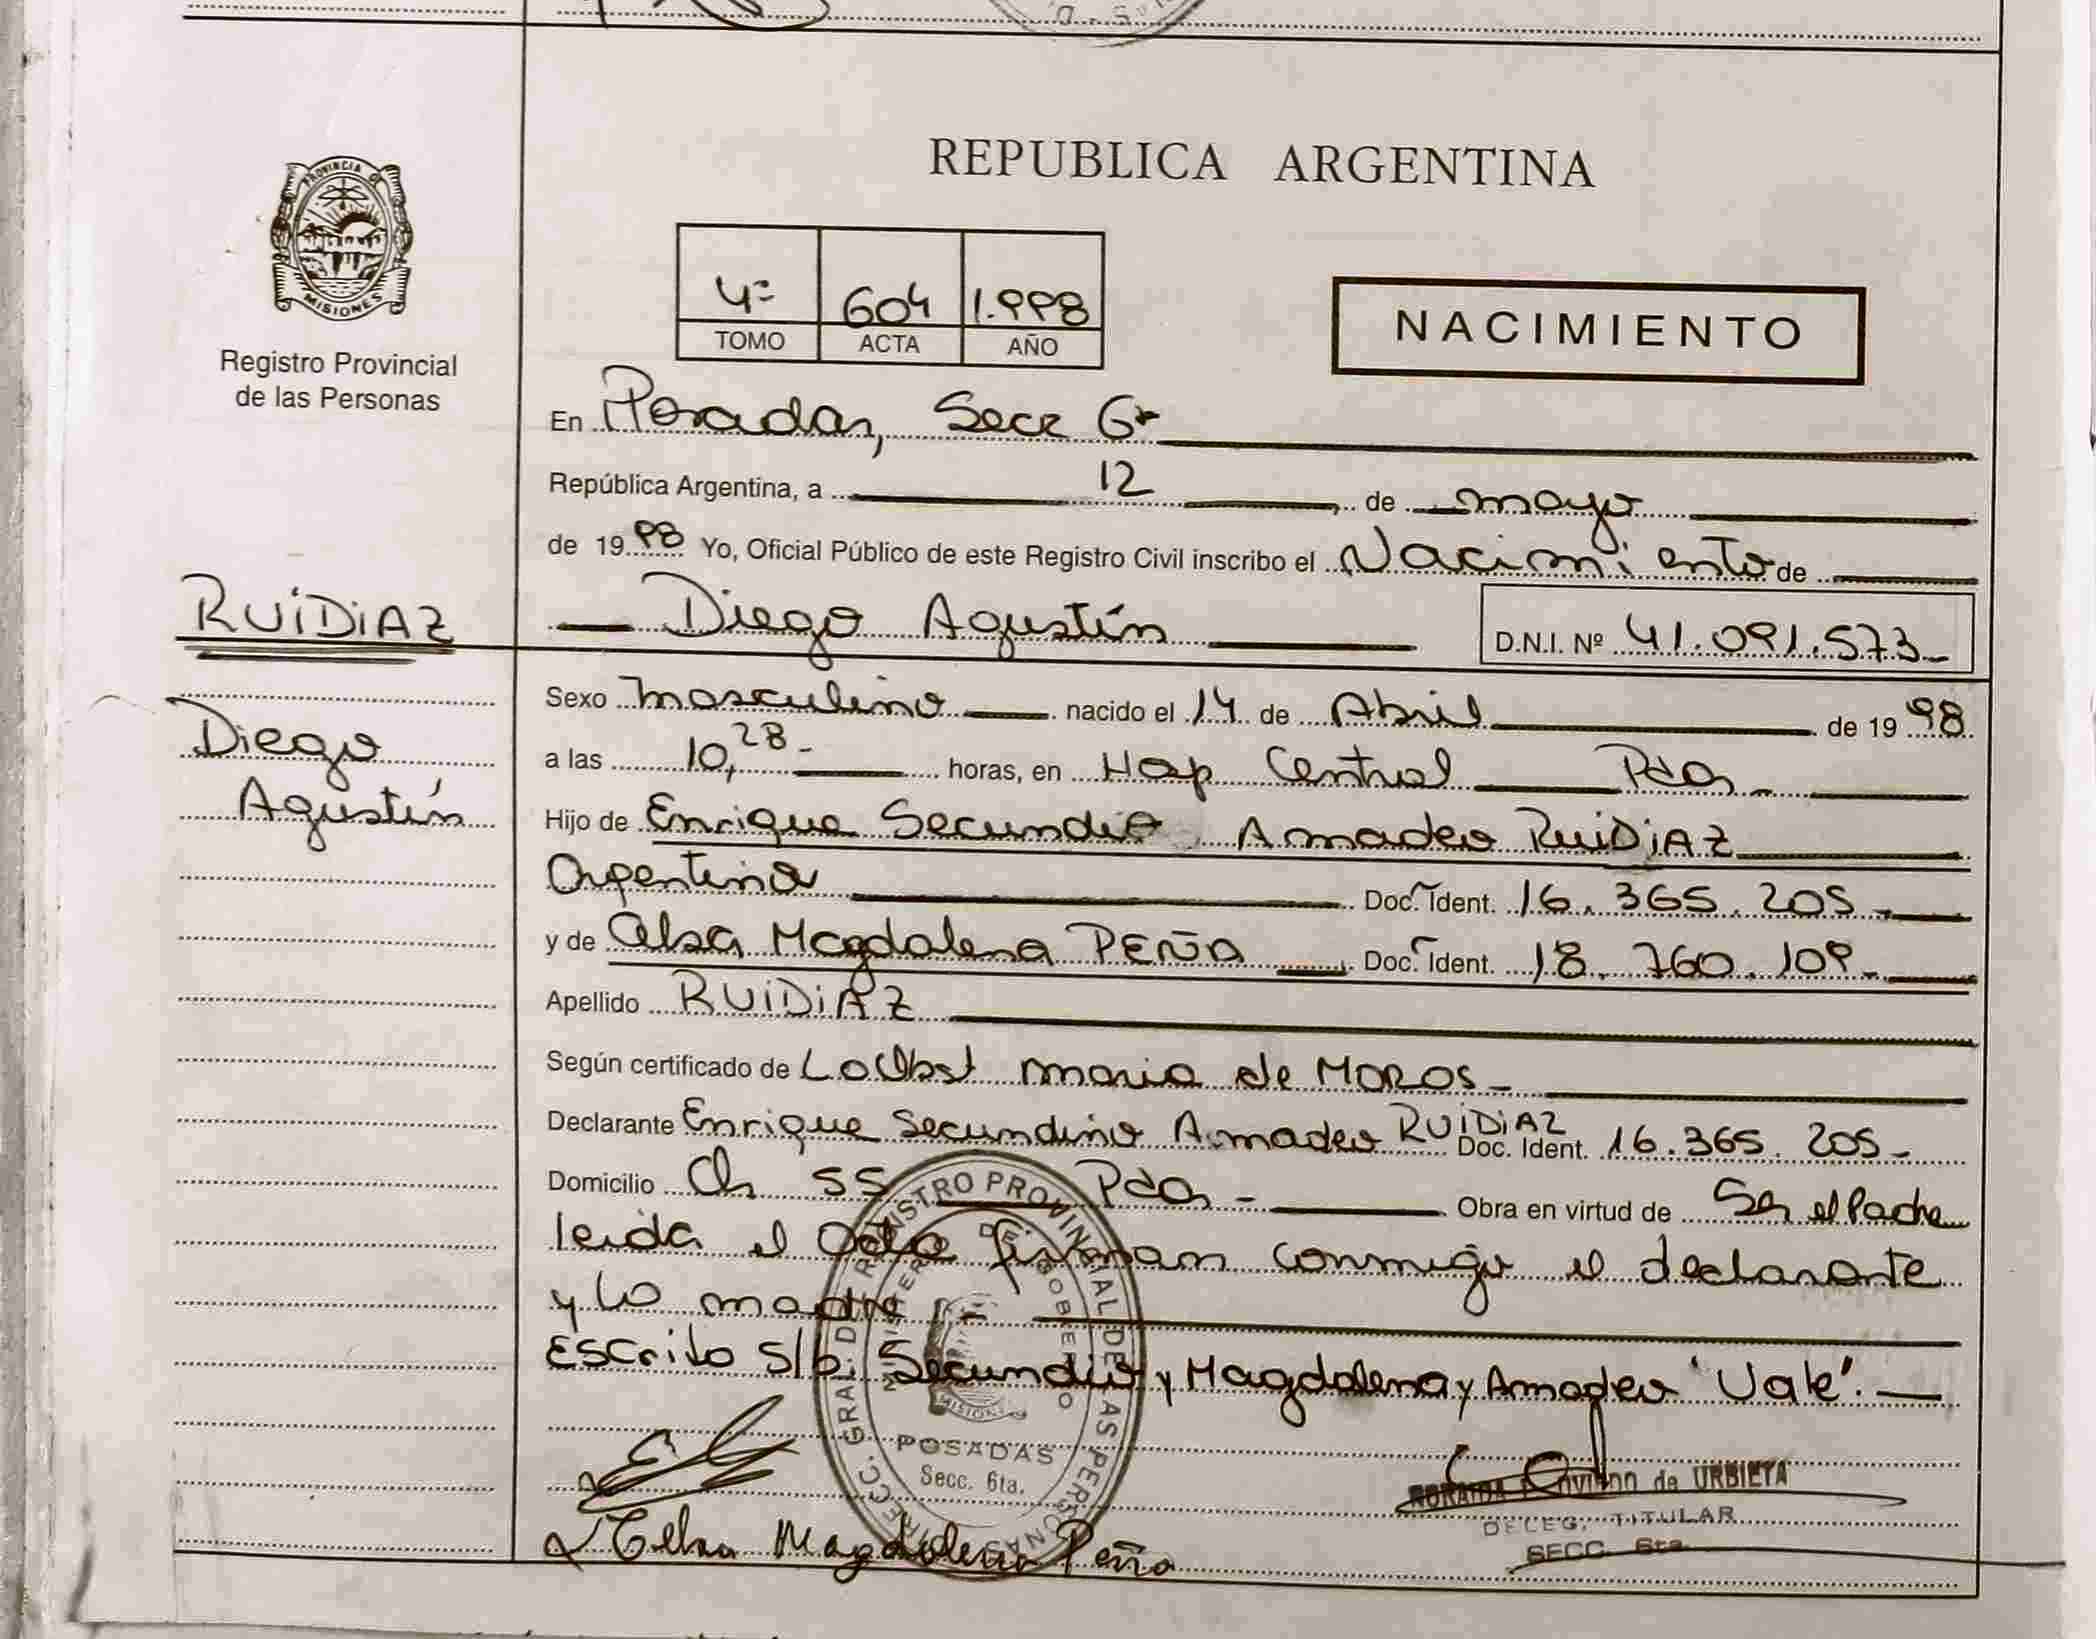 REPUBLICA ARGENTINA
PROVINCIA D
MISIONES
Registro Provincial
de las Personas
4º 604 1.998
TOMO ACTA AÑO
NACIMIENTO
En Posadas, Secc 6ª
República Argentina, a 12 de mayo
de 1998 Yo, Oficial Público de este Registro Civil inscribo el Nacimiento de
RUiDiAZ
Diego Agustín D.N.I. Nº 41.091.573
Diego
Agustín
Sexo masculino nacido el 14 de Abril de 1998
a las 10,28- horas, en Hosp Central Pdas
Hijo de Enrique Secundino Amadeo RuiDiAZ
Argentino Doc. Ident. 16.365.205
y de Elsa Magdalena PEÑA Doc. Ident. 18.760.109
Apellido RUiDiAZ
Según certificado de La Obst maria de MOROS
Declarante Enrique Secundino Amadeo RUiDiAZ Doc. Ident. 16.365.205
Domicilio Ch 55 Pdas Obra en virtud de Ser el Padre
leida el Acta firman conmigo el declarante
y la madre
Escrito s/b Secundino y Magdalena y Amadeo "Vale".
DIRECC. GRAL. DE REGISTRO PROVINCIAL DE LAS PERSONAS
MINISTERIO DE GOBIERNO
MISIONES
POSADAS
Secc. 6ta.
Elsa Magdalena Peña
de URBIETA
DELEG. TITULAR
SECC. 6ta